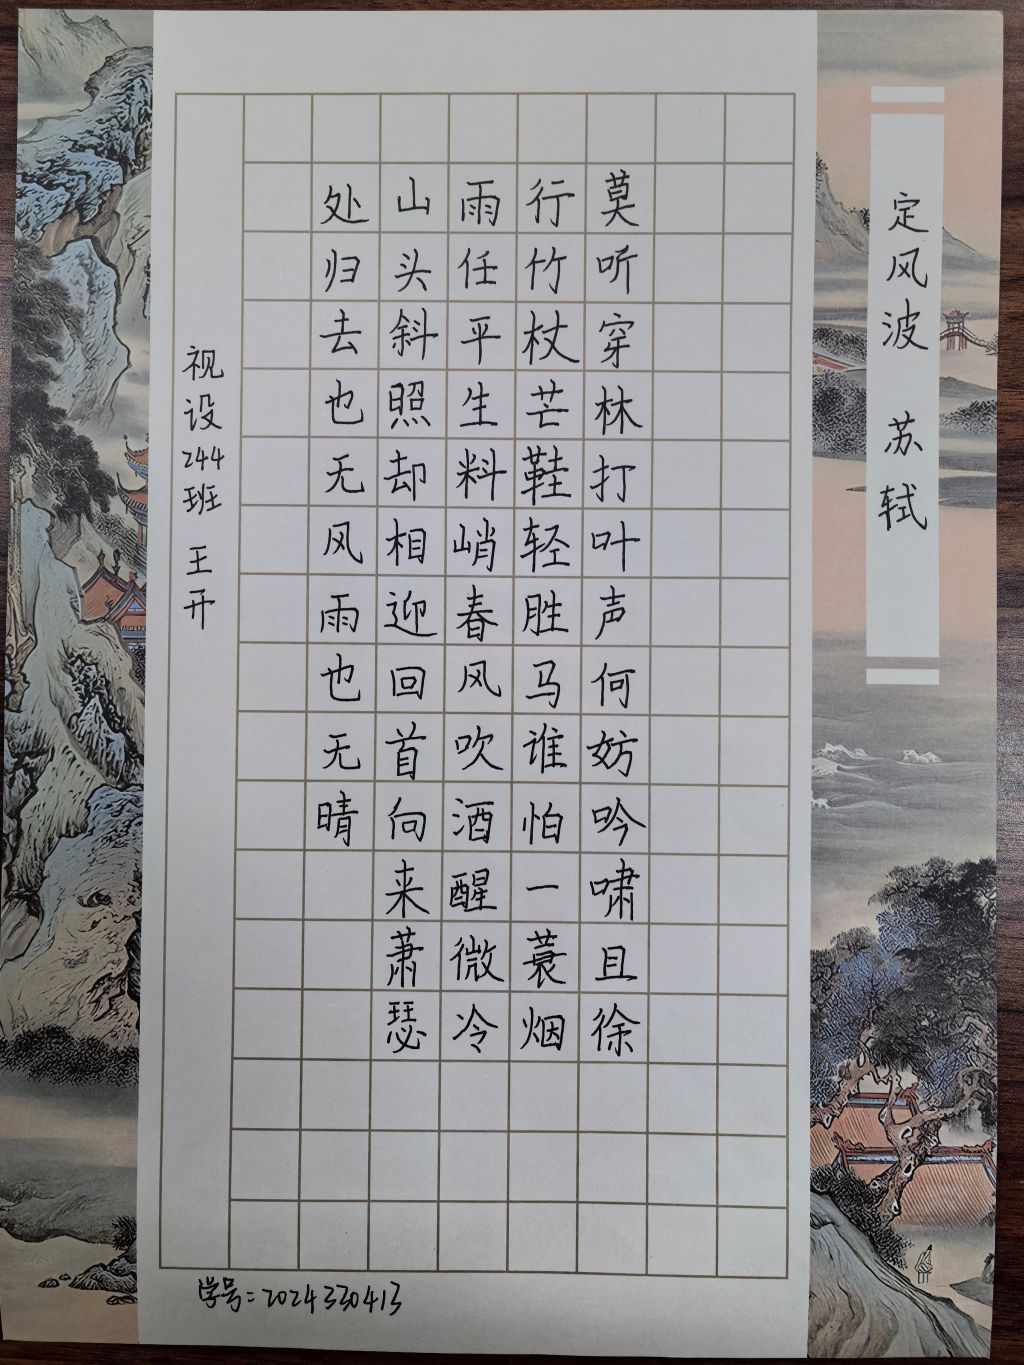 定风波 苏轼
莫听穿林打叶声何妨吟啸且徐
行竹杖芒鞋轻胜马谁怕一蓑烟
雨任平生料峭春风吹酒醒微冷
山头斜照却相迎回首向来萧瑟
处归去也无风雨也无晴
视设244班 王开
学号:2024330413